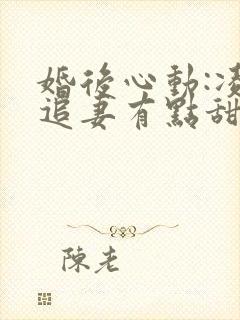 婚後心動:凌
追妻有點甜
陳老